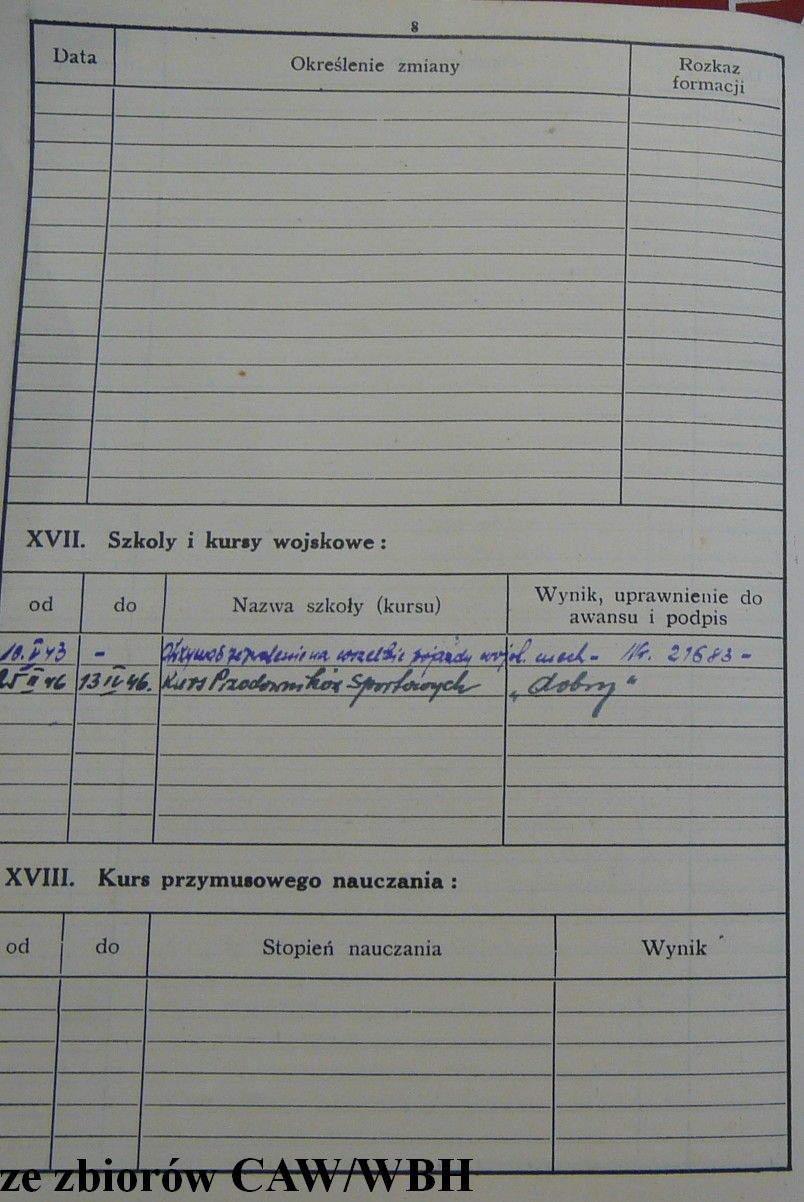 8
Data Określenie zmiany Rozkaz formacji
XVII. Szkoły i kursy wojskowe :
od do Nazwa szkoły (kursu) Wynik, uprawnienie do awansu i podpis
10. V 43 - zezwolenie na wszelkie pojazdy mech - Nr. 21683 -
25 II 46 13 IV 46. Kurs Przodowników Sportowych „dobry"
XVIII. Kurs przymusowego nauczania :
od do Stopień nauczania Wynik
ze zbiorów CAW/WBH